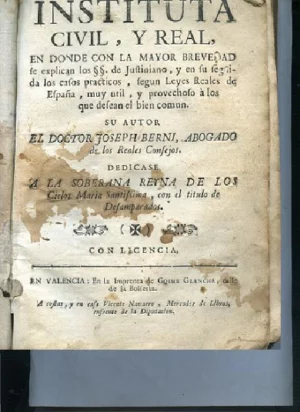 INSTITUTA
CIVIL, Y REAL,
EN DONDE CON LA MAYOR BREVEDAD
se explican los §§. de Justiniano, y en su segui-
da los casos practicos, segun Leyes Reales de
España, muy util, y provechoso à los
que desean el bien comun.
SU AUTOR,
EL DOCTOR JOSEPH BERNI, ABOGADO
de los Reales Consejos.
DEDICASE
A LA SOBERANA REYNA DE LOS
Cielos Maria Santissima, con el titulo de
Desamparados.
CON LICENCIA.
EN VALENCIA: En la Imprenta de
de la Bolseria.
A costas, y en casa Vicente Navarro, Mercader de Libros,
enfrente de la Diputacion.